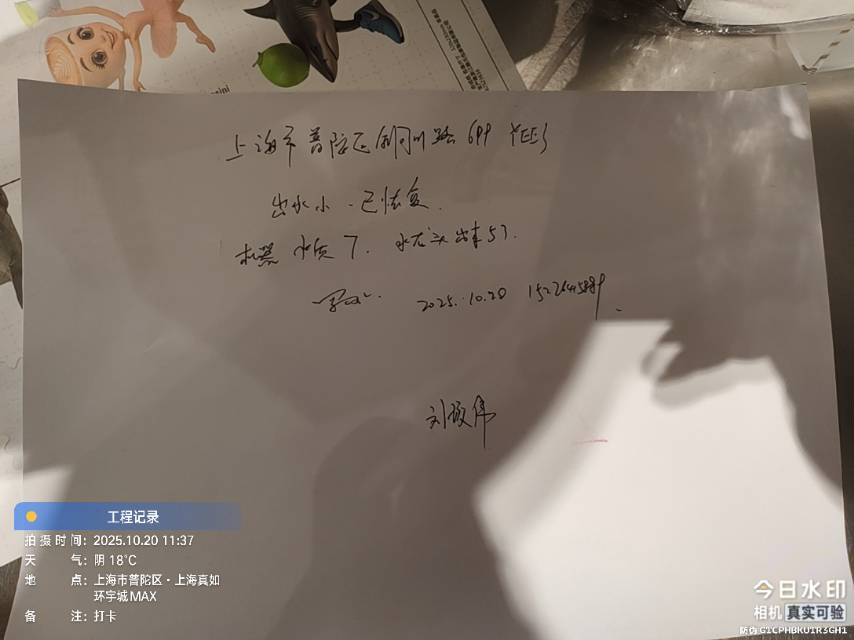 上海市普陀区铜川路699 YEES
出水小.已恢复.
机器 水质7. 水龙头出来57.
2025.10.20
刘俊伟
工程记录
拍摄时间：2025.10.20 11:37
天气：阴 18℃
地点：上海市普陀区·上海真如环宇城MAX
备注：打卡
今日水印
相机 真实可验
防伪 G1CPHBKUTR3GH1